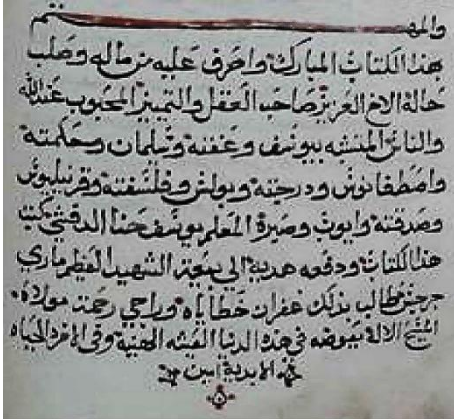 والمهـ ـتم
هذا الكتاب المبارك واصرف عليه من ماله وصلب
حاله الاخ العزيز صاحب العقل والتمييز المحبوب عند الله
والناس المتشبه بيوسف وعفته وسليمان وحكمته
واصطفانوس ودرجته وبولس وفلسفته وقرنيليوس
وصدقته وايوب وصبره المعلم يوسف حنا الدقشي كتب
هذا الكتاب ودفعه هدية الي بيعة الشهيد العظيم ماري
جرجس طالب بذلك غفران خطاياه وراجي رحمة مولاه
المسيح الاله يعوضه في هذه الدنيا العيشه الهنية وفي الاخره الحياه
الابدية امين